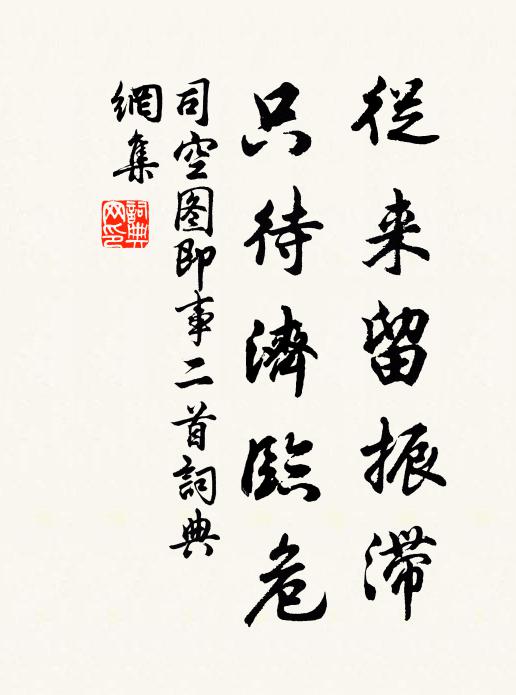 從来留振滯
只待濟臨危
司空图即事二首詞典
網集
詞典网印